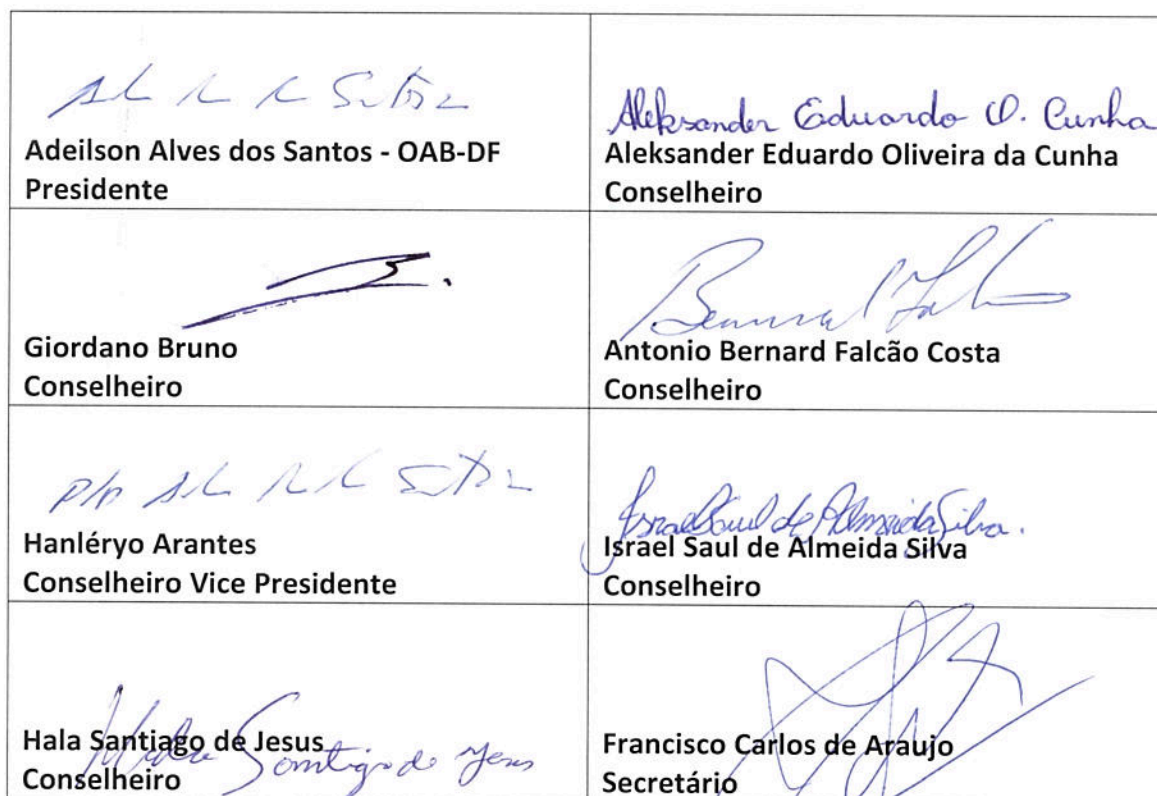 Santos
Adeilson Alves dos Santos - OAB-DF
Presidente
Aleksander Eduardo O. Cunha
Aleksander Eduardo Oliveira da Cunha
Conselheiro
Giordano Bruno
Conselheiro
Bernard Falcão
Antonio Bernard Falcão Costa
Conselheiro
p/p Santos
Hanléryo Arantes
Conselheiro Vice Presidente
Israel Saul de Almeida Silva.
Israel Saul de Almeida Silva
Conselheiro
Hala Santiago de Jesus
Santiago de Jesus
Conselheiro
Francisco Carlos de Araujo
Secretário